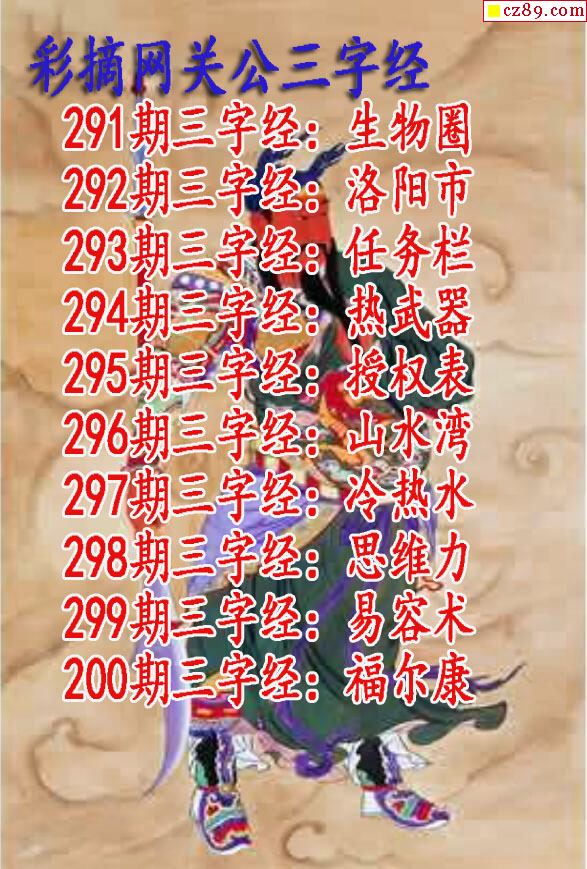 cz89.com
彩摘网关公三字经
291期三字经：生物圈
292期三字经：洛阳市
293期三字经：任务栏
294期三字经：热武器
295期三字经：授权表
296期三字经：山水湾
297期三字经：冷热水
298期三字经：思维力
299期三字经：易容术
200期三字经：福尔康